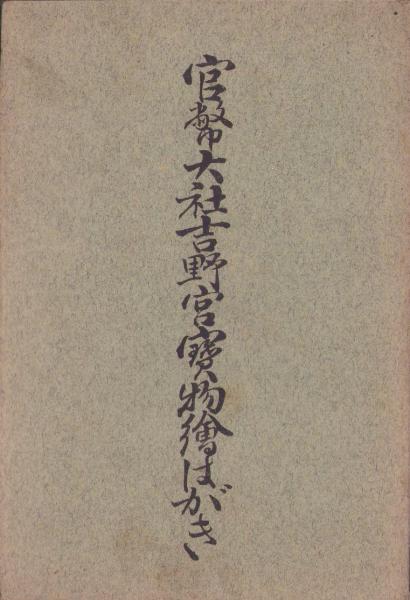 官幣大社吉野宮寳物繪はがき